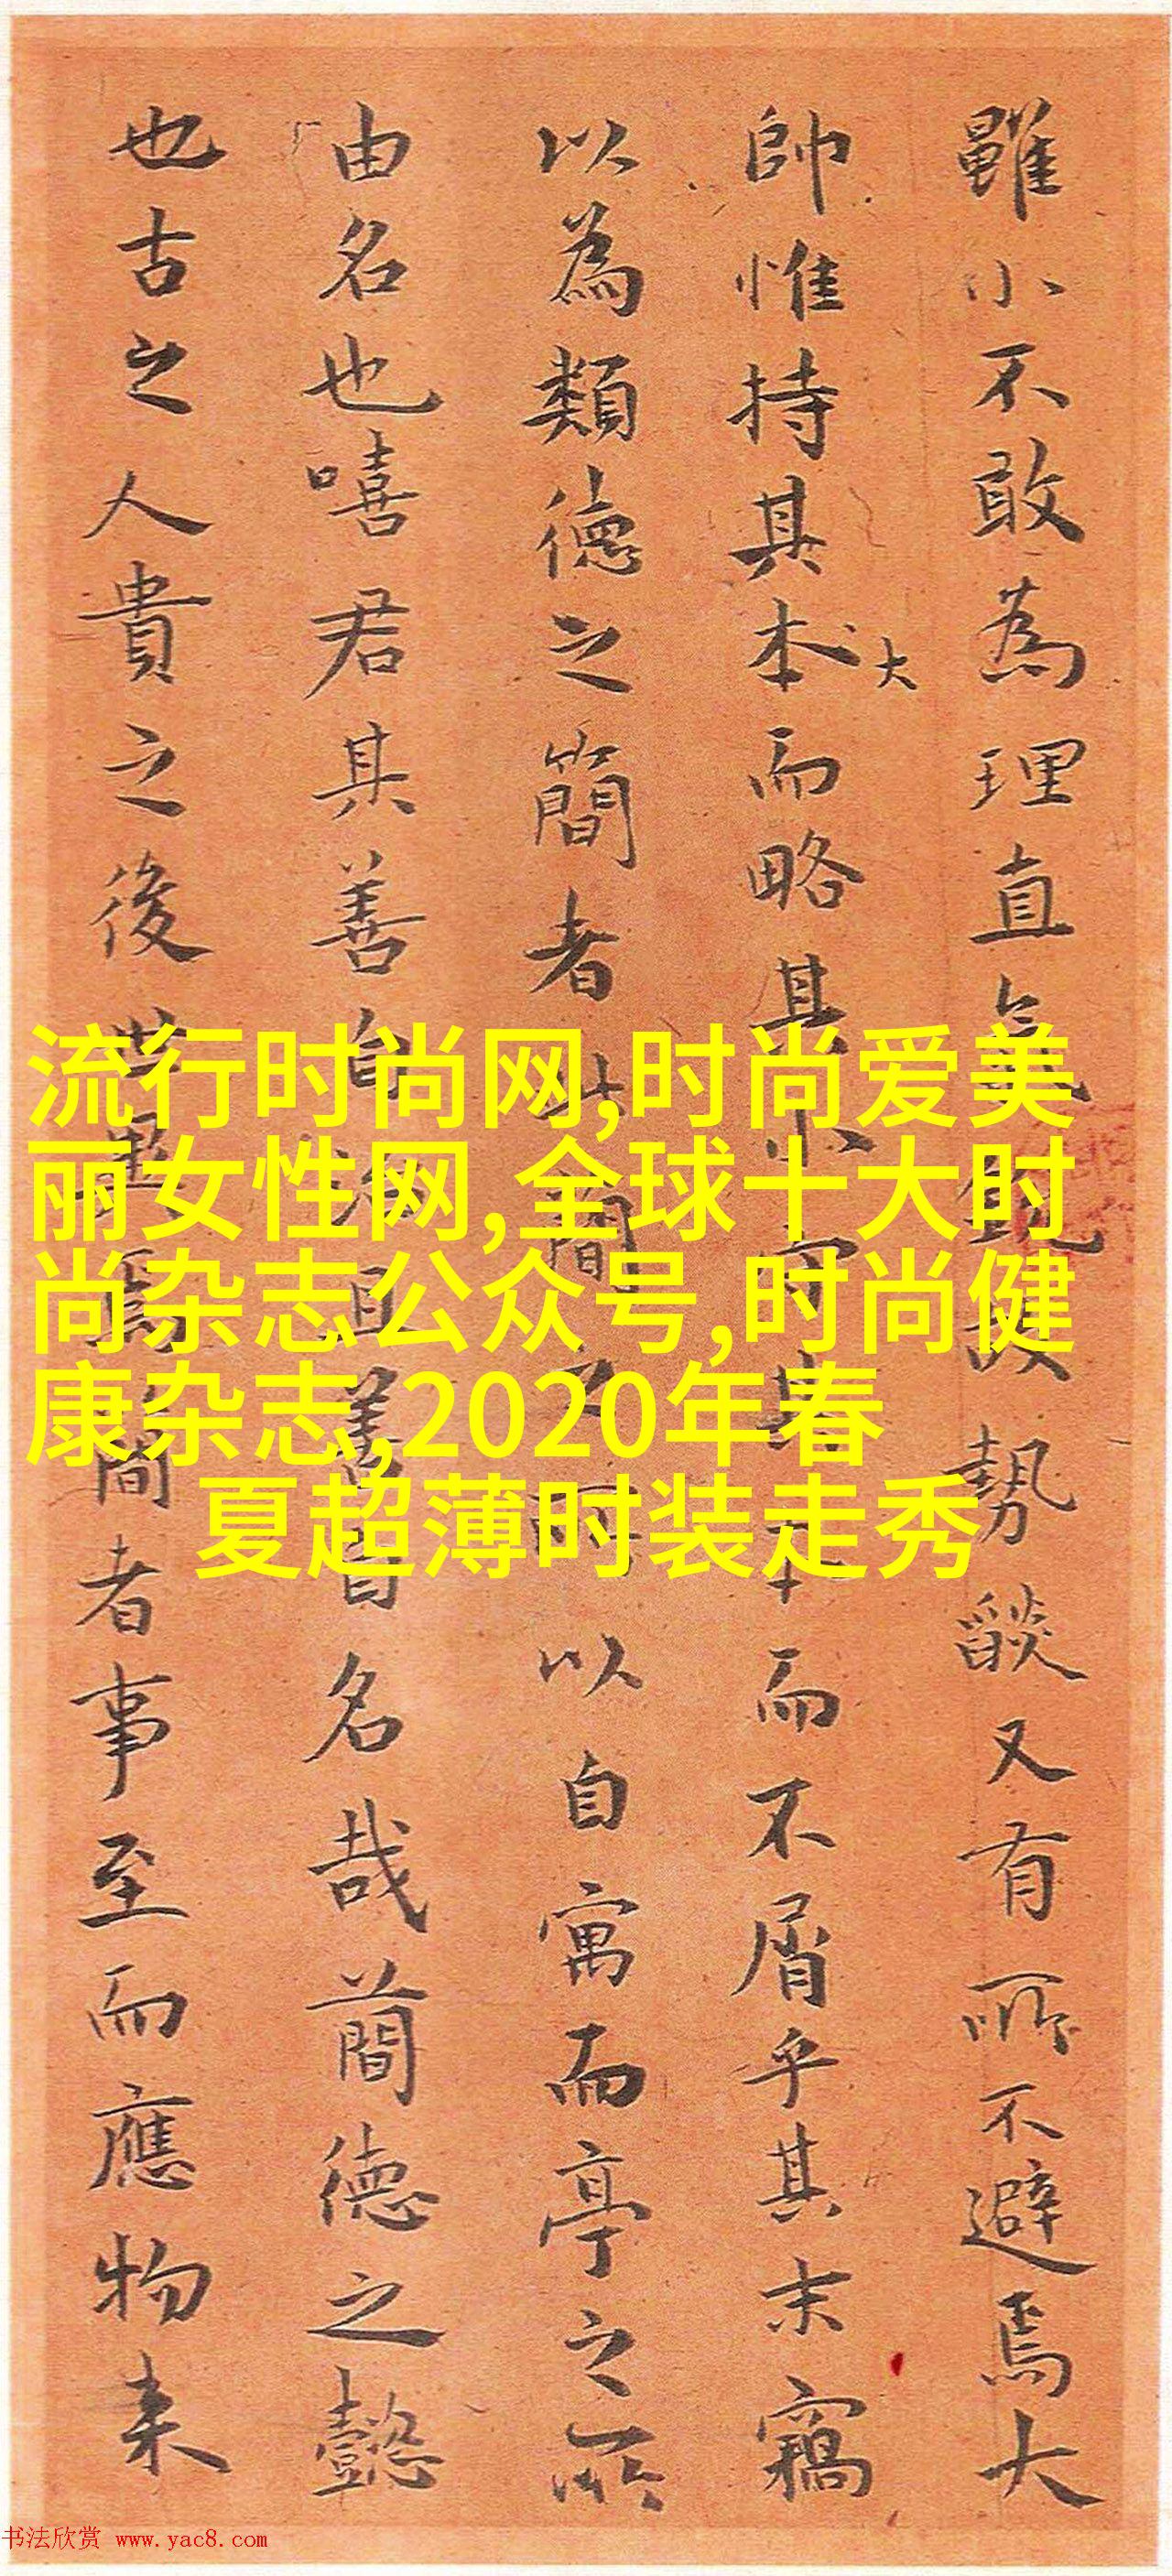 雖小不敢為理直氣 故勢燄又有所不避焉大
帥惟持其本大而略其末 守其本而不屑乎其末竊
以為類德之簡者此簡之所以自寓而亭之所
由名也嘻君其善自治且善自名哉蕳德之懿
也古之人貴之後世 為簡者事至而應物来
流行时尚网,时尚爱美
丽女性网,全球十大时
尚杂志公众号,时尚健
康杂志,2020年春
夏超薄时装走秀
书法欣赏 www.yac8.com